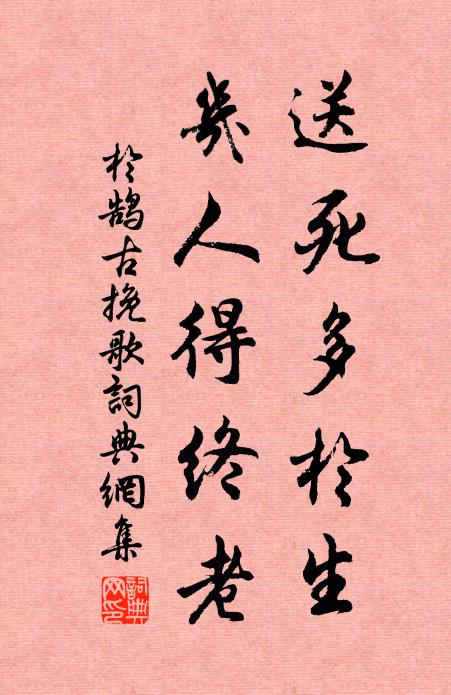 送死多於生
幾人得終老
於鵠古挽歌詞典網集
詞典網印